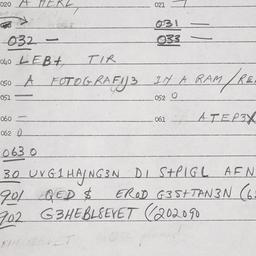 020 A HERL 021
031 —
032 — 033 —
040 LEBT TIR
050 A FOTOGRAFIJ3 IN A RAM/
051 — 052 0
060 — 061 ATEP3X
062 0
063 0
30 UVG1HAJNG3N DI S+PIGL AFN
901 QED $ EROD G3S+TAN3N (6
902 G3HEBLSEVET (1202090